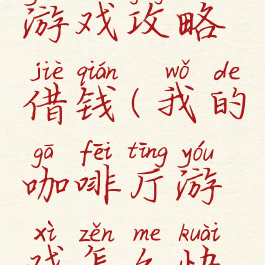 游戏攻略
jiè qián wǒ de
借钱(我的
gā fēi tīng yóu
咖啡厅游
xì zěn me kuài
戏怎么快